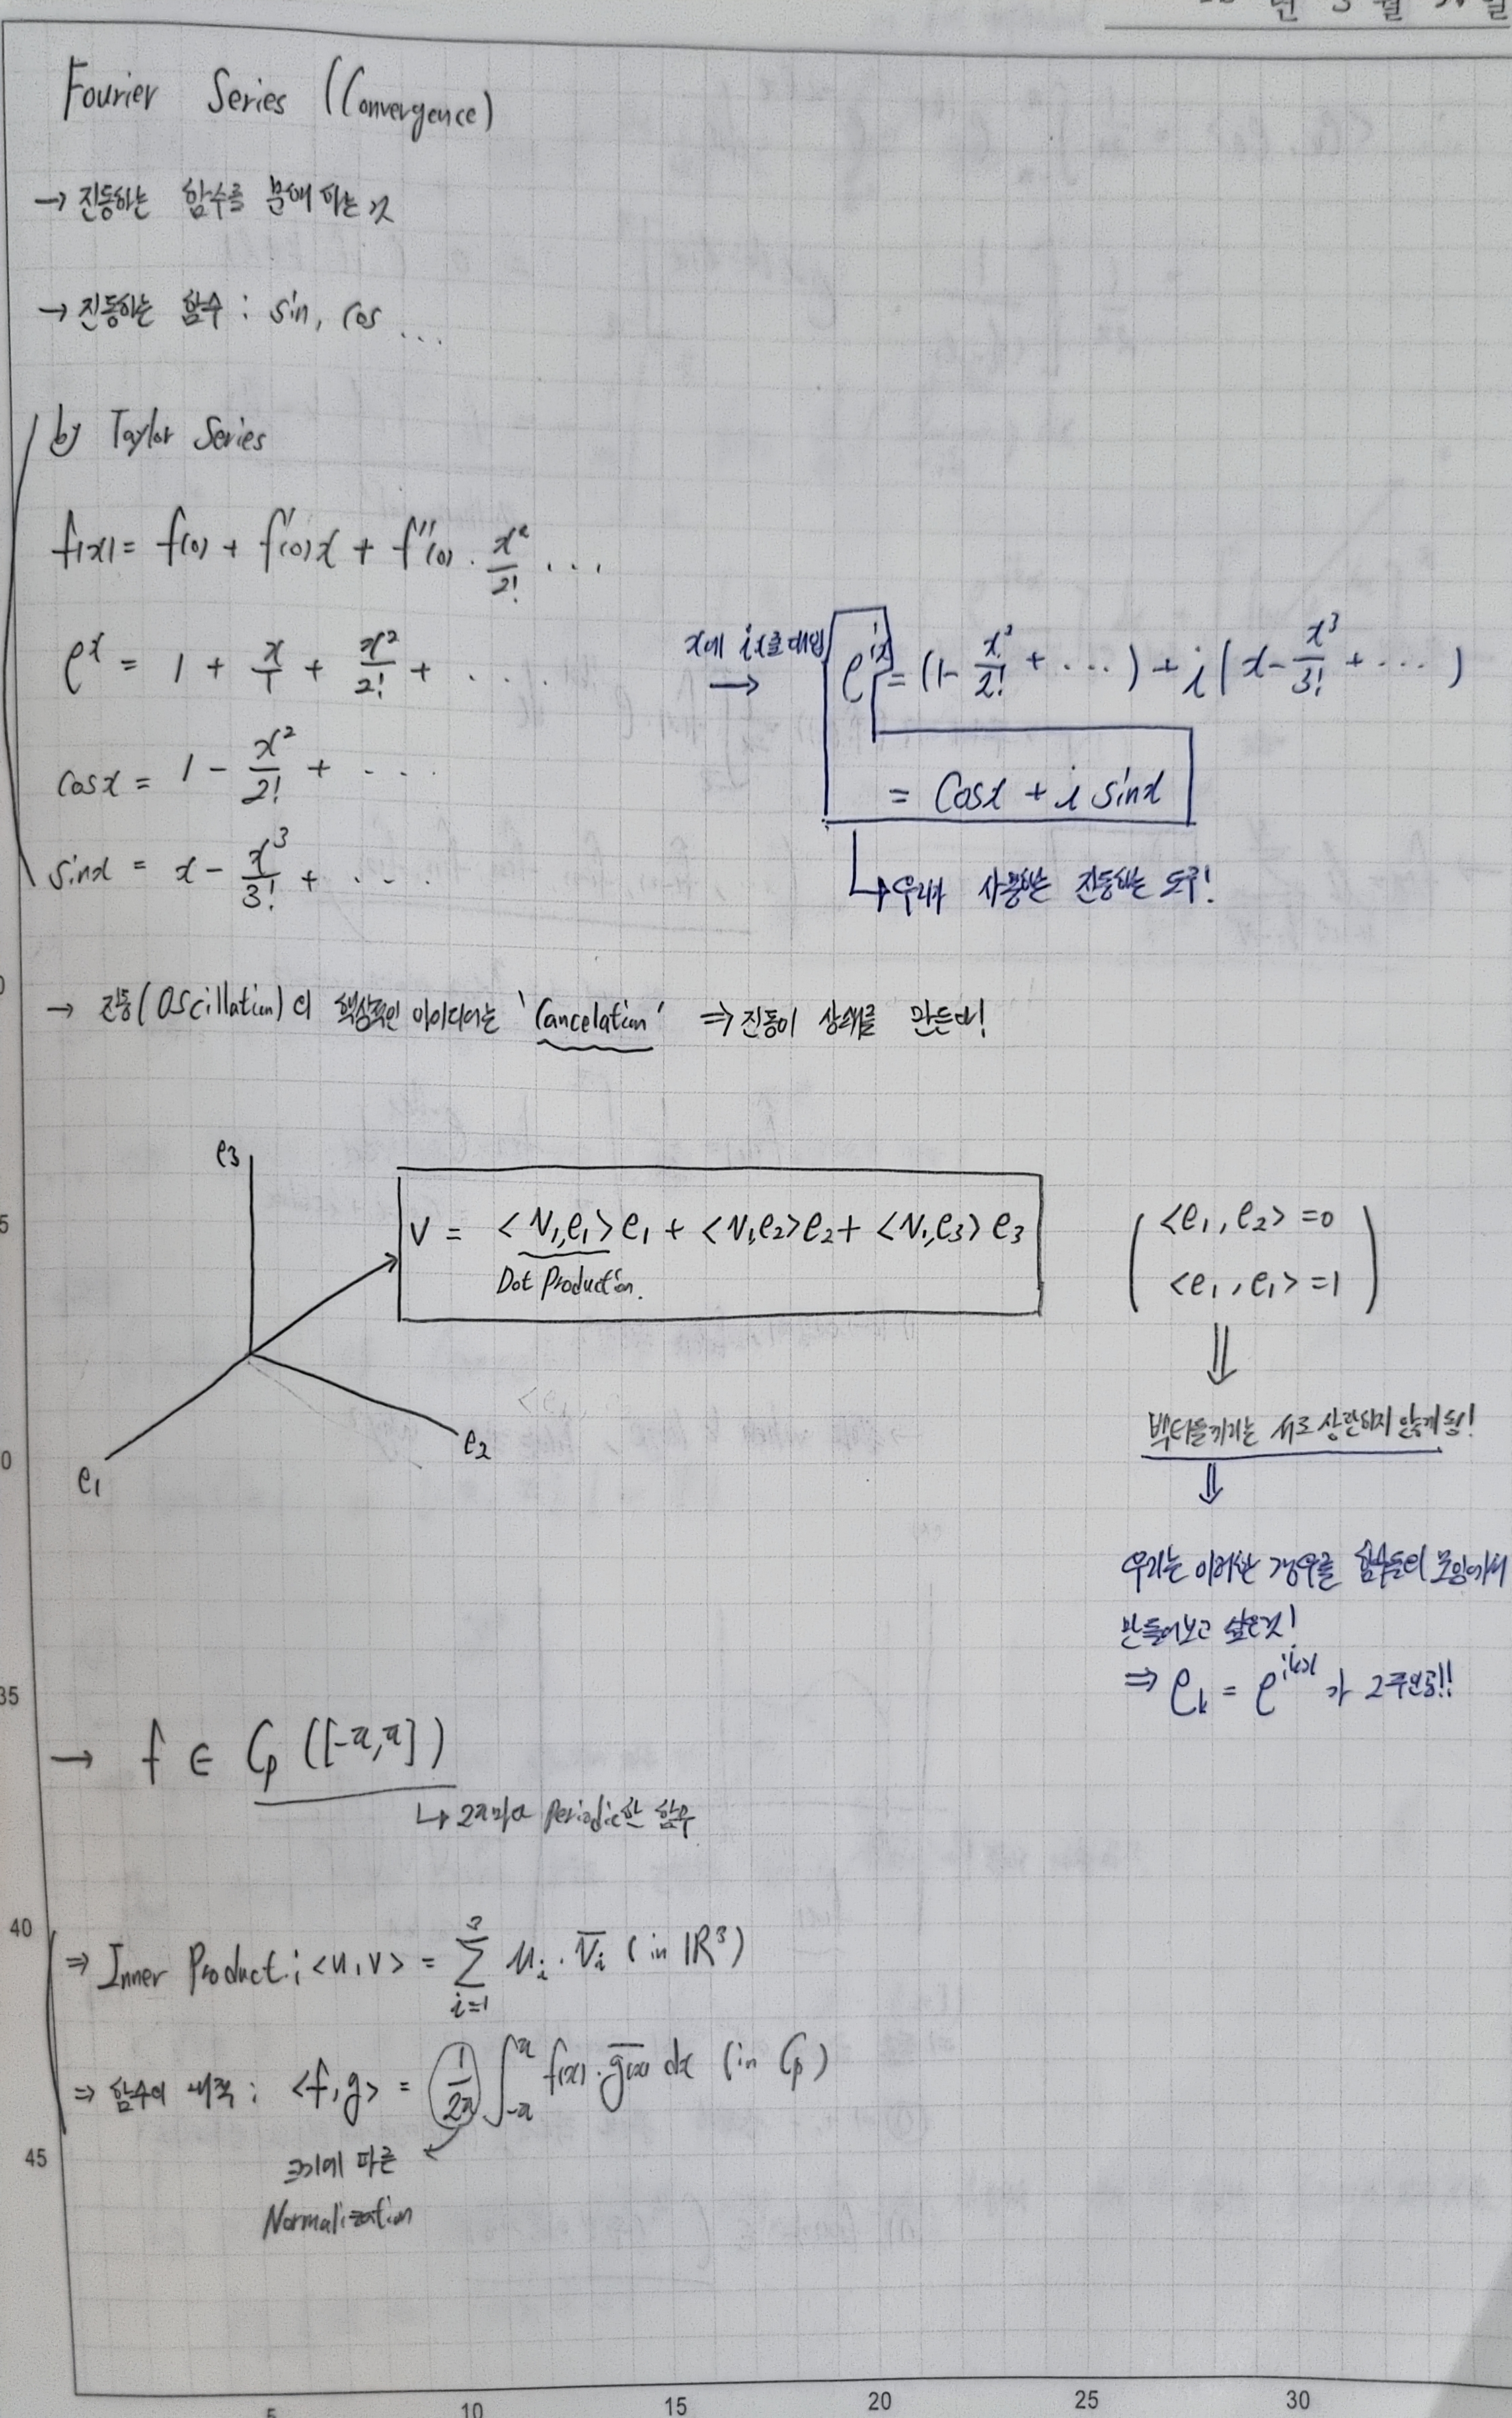 년 3월 일
Fourier Series (Convergence)
→ 진동하는 함수를 분해하는 것
→ 진동하는 함수 : sin, cos ...
by Taylor Series
f(x) = f(0) + f'(0)x + f''(0) · x²/2! ...
e^x = 1 + x/1 + x²/2! + ....
x에 ix를 대입 → e^{ix} = (1 - x²/2! + ...) + i(x - x³/3! + ...)
cosx = 1 - x²/2! + ...
= Cosx + i sinx
sinx = x - x³/3! + ...
↳ 우리가 사용하는 진동하는 도구!
→ 진동(Oscillation)의 핵심적인 아이디어는 'Cancelation' ⇒ 진동이 상쇄를 만든다!
e3
V = <v,e1>e1 + <v,e2>e2 + <v,e3>e3
Dot Production.
<e1, e2> = 0
<e1, e1> = 1
⇓
e2
e1
벡터들끼리는 서로 상관하지 않게 됨!
⇓
우리는 이러한 경우를 함수들의 모임에서
만들어보고 싶은것!
⇒ e_k = e^{ikx} 가 주인공!!
→ f ∈ Cp ([-π,π])
↳ 2π마다 Periodic한 함수
⇒ Inner Product : <u,v> = Σ_{i=1}^{3} u_i · v̅_i (in ℝ³)
⇒ 함수의 내적 : <f,g> = (1/2π) ∫_{-π}^{π} f(x) · g̅(x) dx (in Cp)
크기에 따른
Normalization
40
45
5
10
15
20
25
30
35